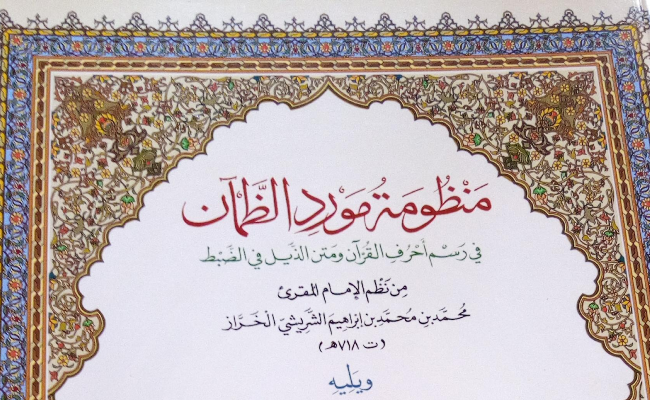 مَنْظُومَةُ مَوْرِدِ الظَّمْآن
في رَسْمِ أَحْرُفِ القُرْآن وَمَتْن الذَّيْل في الضَّبْط
مِن نَظْم الإمام المقرئ
مُحَمَّد بن مُحَمَّد بن إبْرَاهِيم الشَّرِيشِيّ الخَرَّاز
(ت ٧١٨هـ)
وَيَلِيهِ